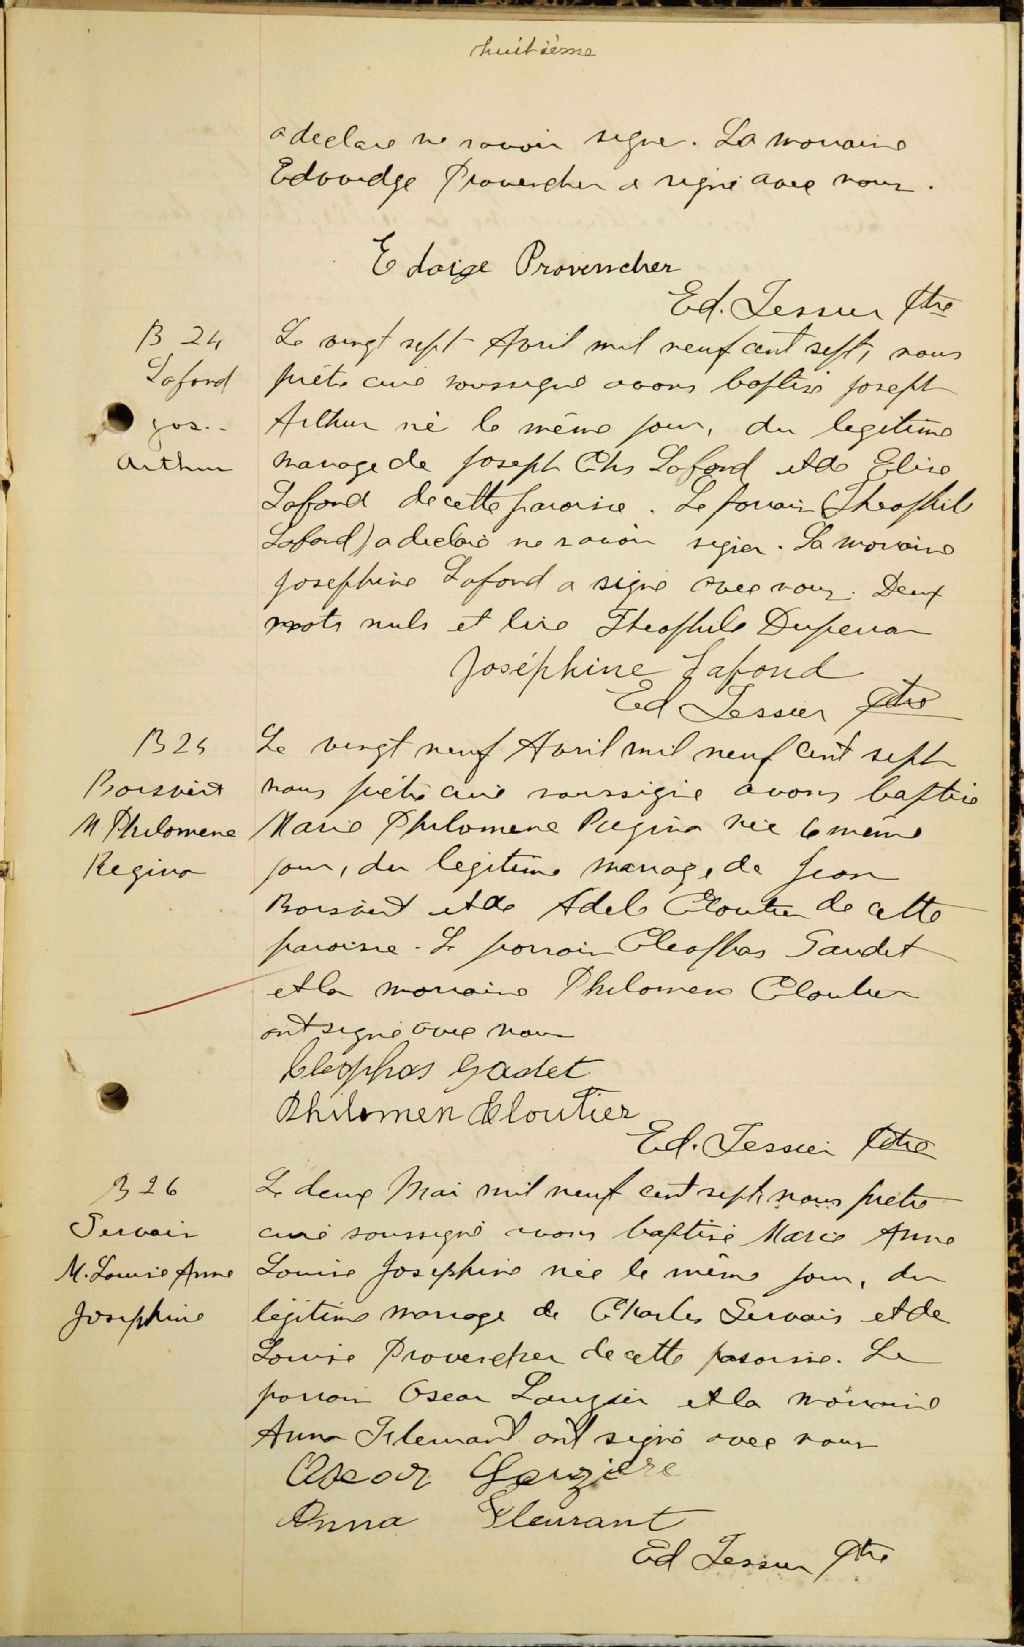 huitième
a declaré ne savoir signer. La marraine
Edwidge Provencher a signé avec nous.
Edwige Provenncher
Ed. Tessier Ptre
B 24
Lafond
Jos..
Arthur
Le vingt sept Avril mil neuf cent sept, nous
prêtre curé soussigné avons baptisé Joseph
Arthur né le même jour, du legitime
mariage de Joseph Chs Lafond et de Elise
Lafond de cette paroisse. Le parrain (Theophile
Lafond) a declaré ne savoir signer. La marraine
Josephine Lafond a signé avec nous. Deux
mots nuls et lire Theophile
Joséphine Lafond
Ed Tessier Ptre
B 25
Boisvert
M Philomene
Regina
Le vingt neuf Avril mil neuf cent sept
nous prêtre curé soussigné avons baptisé
Marie Philomene Regina née le même
jour, du légitime mariage de Jean
Boisvert et de Adele Cloutier de cette
paroisse. Le parrain Cleophas Gaudet
et la marraine Philomene Cloutier
ont signé avec nous
Cleophas Gadet
Philomen Cloutier
Ed. Tessier Ptre
B 26
Servais
M. Louise Anne
Josephine
Le deux Mai mil neuf cent sept, nous prêtre
curé soussigné avons baptisé Marie Anne
Louise Josephine née le même jour, du
légitime mariage de Charles Servais et de
Louise Provencher de cette paroisse. Le
parrain Oscar Lauzier et la marraine
Anna Fleurant ont signé avec nous
Oscar Lauziere
Anna Fleurant
Ed Tessier Ptre